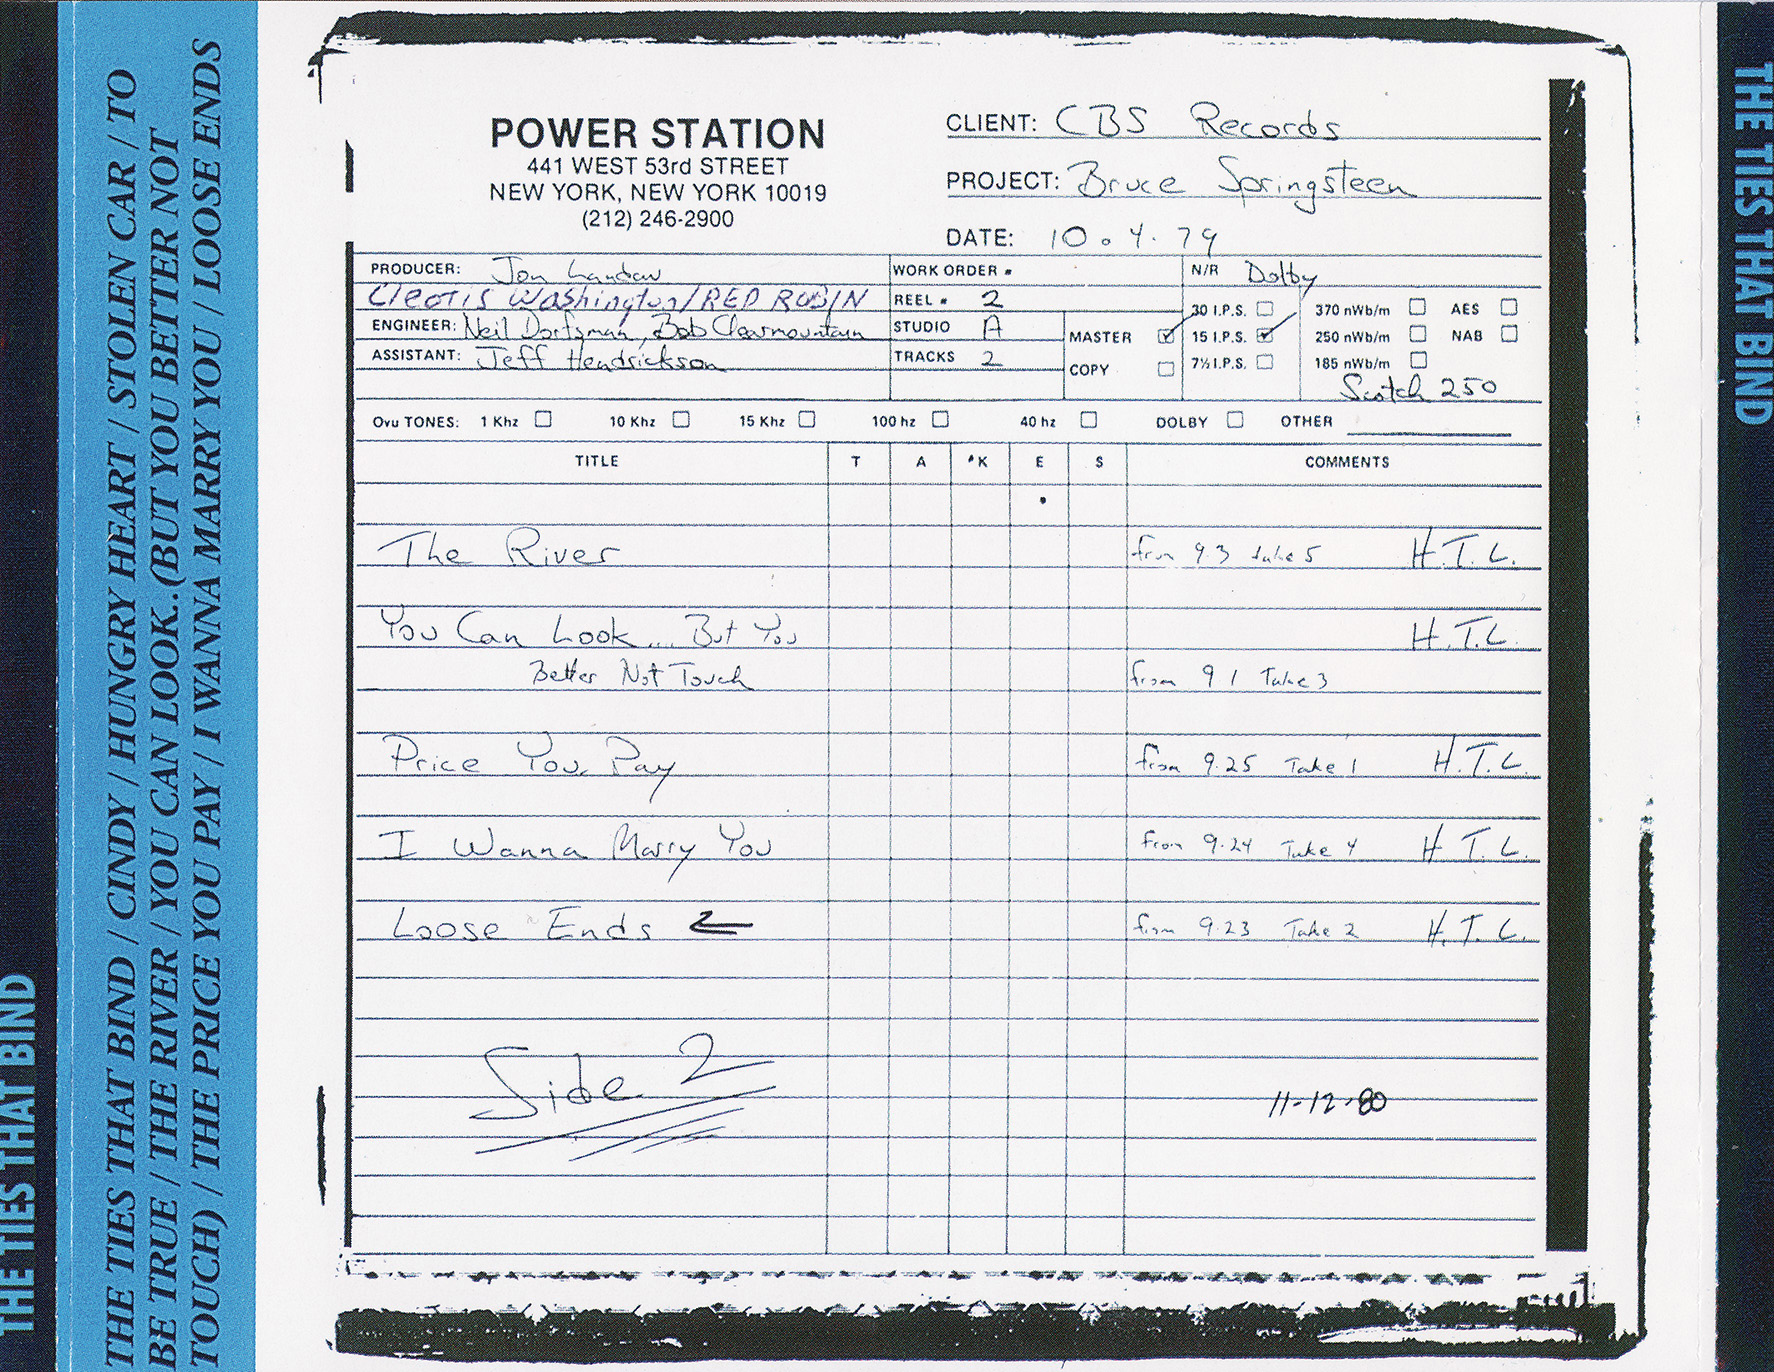 THE TIES THAT BIND
THE TIES THAT BIND / CINDY / HUNGRY HEART / STOLEN CAR / TO
BE TRUE / THE RIVER / YOU CAN LOOK..(BUT YOU BETTER NOT
TOUCH) / THE PRICE YOU PAY / I WANNA MARRY YOU / LOOSE ENDS
POWER STATION
441 WEST 53rd STREET
NEW YORK, NEW YORK 10019
(212) 246-2900
CLIENT: CBS Records
PROJECT: Bruce Springsteen
DATE: 10.4.79
PRODUCER: Jon Landau
Cleotis Washington/RED ROBIN
ENGINEER: Neil Dorfsman, Bob Clearmountain
ASSISTANT: Jeff Hendrickson
WORK ORDER #
REEL # 2
STUDIO A
TRACKS 2
MASTER
COPY
N/R Dolby
30 I.P.S.
15 I.P.S.
7½ I.P.S.
370 nWb/m AES
250 nWb/m NAB
185 nWb/m
Scotch 250
Ovu TONES: 1 Khz 10 Khz 15 Khz 100 hz 40 hz DOLBY OTHER
TITLE T A K E S COMMENTS
The River from 9.3 take 5 H.T.L.
You Can Look.... But You H.T.L.
Better Not Touch from 9 1 Take 3
Price You Pay from 9.25 Take 1 H.T.L.
I Wanna Marry You from 9.24 Take 4 H T L.
Loose Ends from 9.23 Take 2 H.T.L.
Side 2
11-12-80
THE TIES THAT BIND